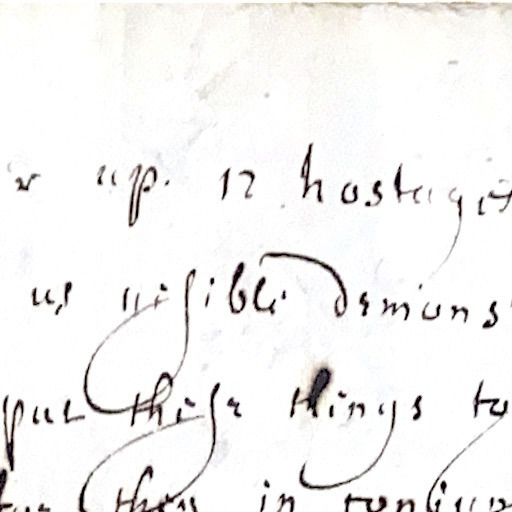 up. 12 hostages
us visible demons
put these things to
they in